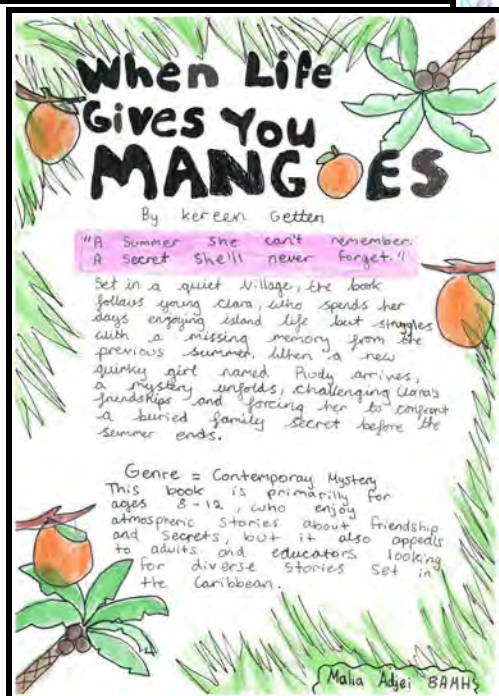 When Life
Gives You
MANGOES
By kereen Getten
"A Summer she can't remember.
A secret She'll never forget."
Set in a quiet village, the book
follows young clara, who spends her
days enjoying island life but struggles
with a missing memory from the
previous summer. When a new
quirky girl named Rudy arrives,
a mystery unfolds, challenging Clara's
friendships and forcing her to confront
a buried family secret before the
summer ends.
Genre = Contemporay Mystery
This book is primarilly for
ages 8-12, who enjoy
atmospheric stories about friendship
and secrets, but it also appeals
to adults and educators looking
for diverse stories set in
the Caribbean.
Malia Adjei 8AMHS